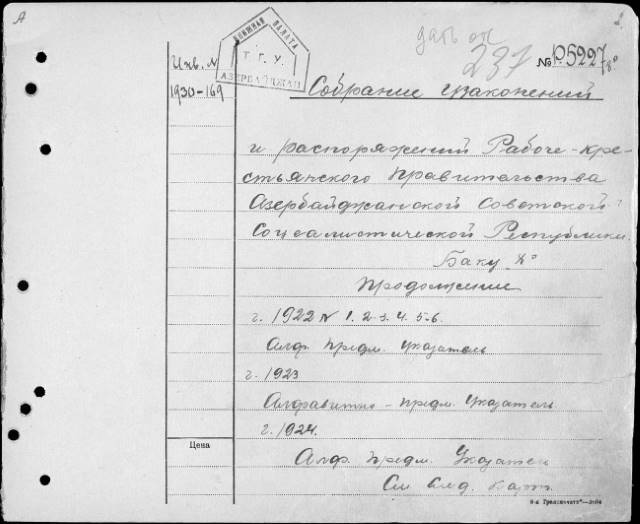 А
2.
дать ок
237
№ Р5227 8°
КНИЖНАЯ ПАЛАТА
Т. Г. У.
АЗЕРБАЙДЖАН
Инв. №
1930-169
Собрание узаконений
и распоряжений Рабоче-кре-
стьянского правительства
Азербайджанской Советской
Социалистической Республики.
Баку 8°
продолжение
г. 1922 № 1. 2-3. 4. 5-6.
Алф. предм. указатель
г. 1923
Алфавитно-предм. Указатель
г. 1924.
Цена
Алф. предм. Указатель
См след. карт.